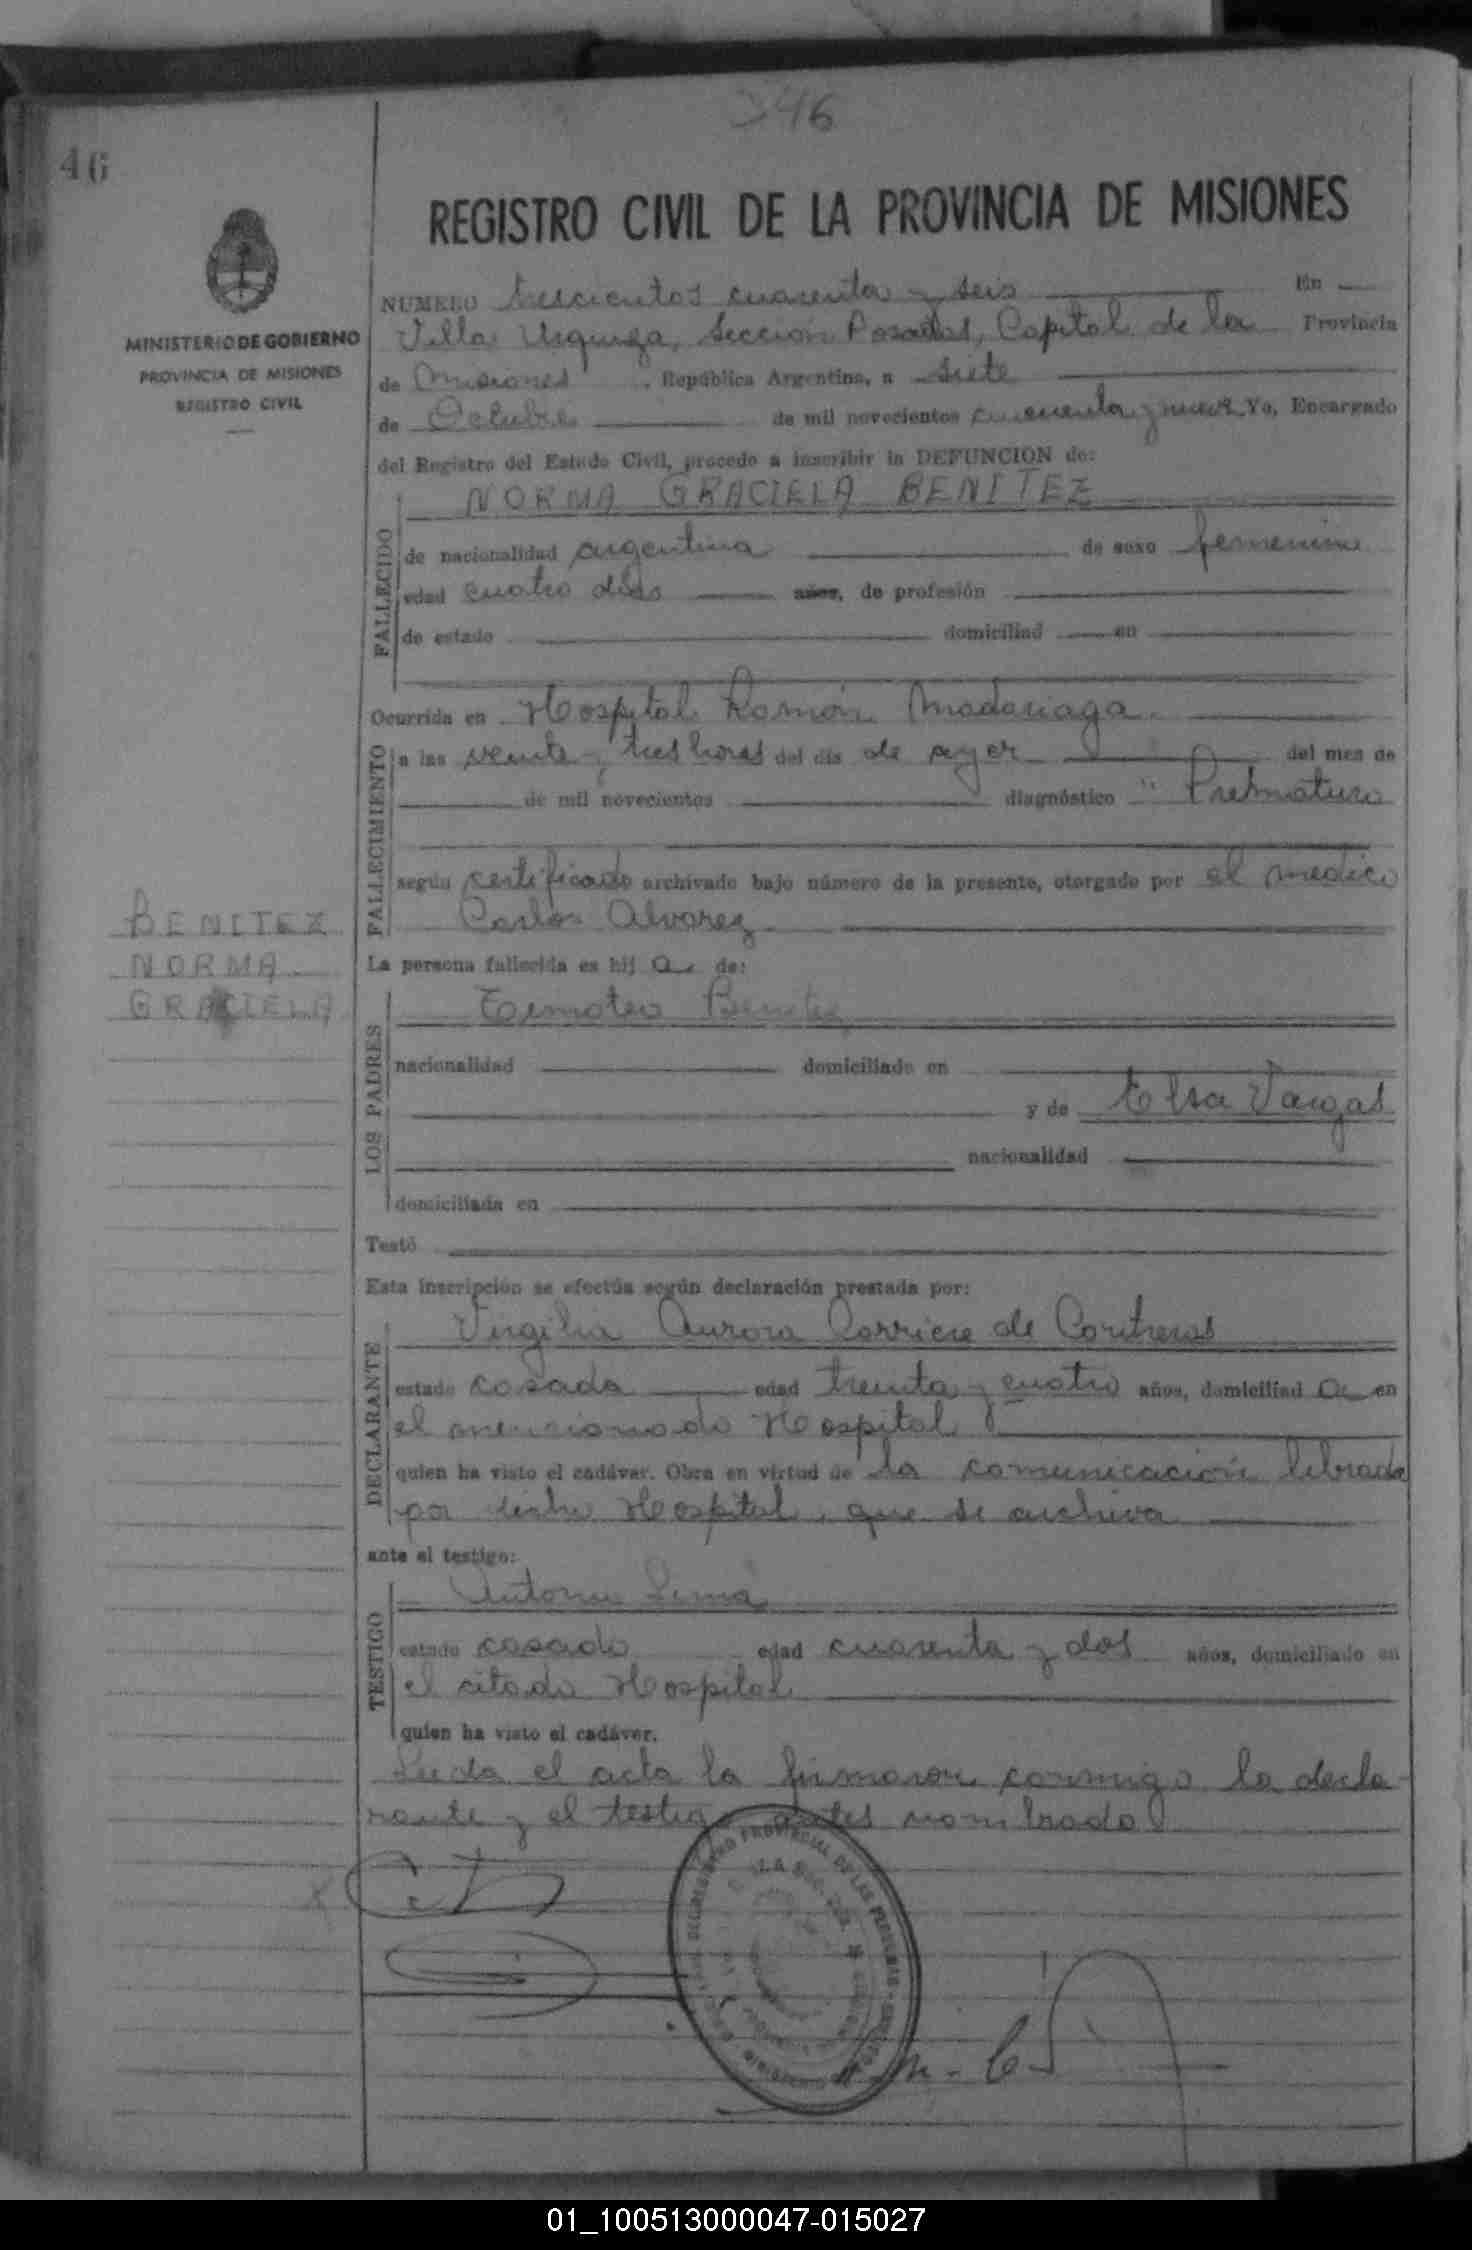 346
46
REGISTRO CIVIL DE LA PROVINCIA DE MISIONES
MINISTERIO DE GOBIERNO
PROVINCIA DE MISIONES
REGISTRO CIVIL
NUMERO trescientos cuarenta y seis En
Villa Urquiza, Sección Posadas, Capital de la Provincia
de Misiones, República Argentina, a siete
de Octubre de mil novecientos cincuenta y nueve Yo, Encargado
del Registro del Estado Civil, procedo a inscribir la DEFUNCION de:
NORMA GRACIELA BENITEZ
FALLECIDO
de nacionalidad argentina de sexo femenino
edad cuatro días años, de profesión
de estado domiciliad en
Ocurrida en Hospital Ramón Madariaga.
FALLECIMIENTO
a las veinte y tres horas del día de ayer del mes de
de mil novecientos diagnóstico " Prematuro
según certificado archivado bajo número de la presente, otorgado por el medico
Carlos Alvarez
BENITEZ
NORMA
GRACIELA
La persona fallecida es hij a de:
LOS PADRES
Temoteo Benitez
nacionalidad domiciliado en
y de Elsa Vargas
nacionalidad
domiciliada en
Testó
Esta inscripción se efectúa según declaración prestada por:
DECLARANTE
Virgilia Aurora Corriere de Contreras
estado casada edad treinta y cuatro años, domiciliad a en
el mencionado Hospital
quien ha visto el cadáver. Obra en virtud de la comunicación librada
por dicho Hospital, que se archiva
ante el testigo:
TESTIGO
Antonio Lima
estado casado edad cuarenta y dos años, domiciliado en
el citado Hospital
quien ha visto el cadáver.
Leida el acta la firmaron conmigo la decla-
rante y el testigo antes nombrado
REGISTRO PROVINCIAL DE LAS PERSONAS
01_100513000047-015027